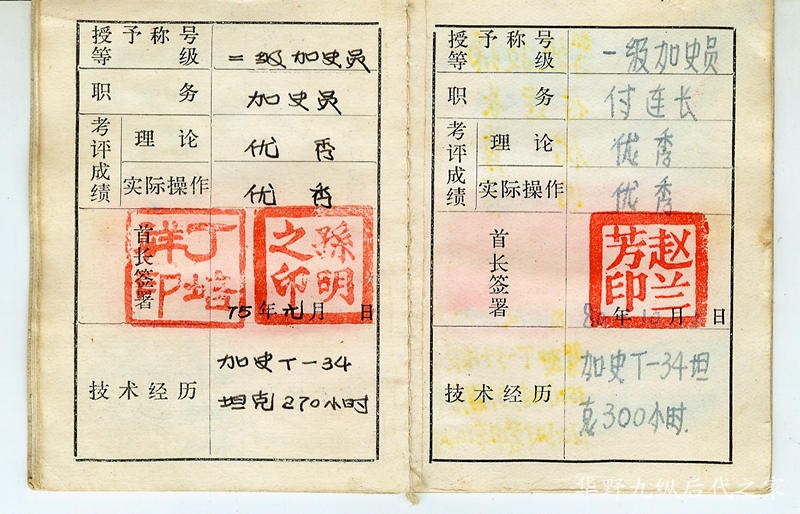 授予称号
等级
二级加史员
职务
加史员
考评成绩
理论
优秀
实际操作
优秀
首长签署
丁培祥印
孙明之印
75年元月 日
技术经历
加史T-34
坦克270小时
授予称号
等级
一级加史员
职务
付连长
考评成绩
理论
优秀
实际操作
优秀
首长签署
赵兰芳印
年 月 日
技术经历
加史T-34坦
克300小时.
华野九纵后代之家